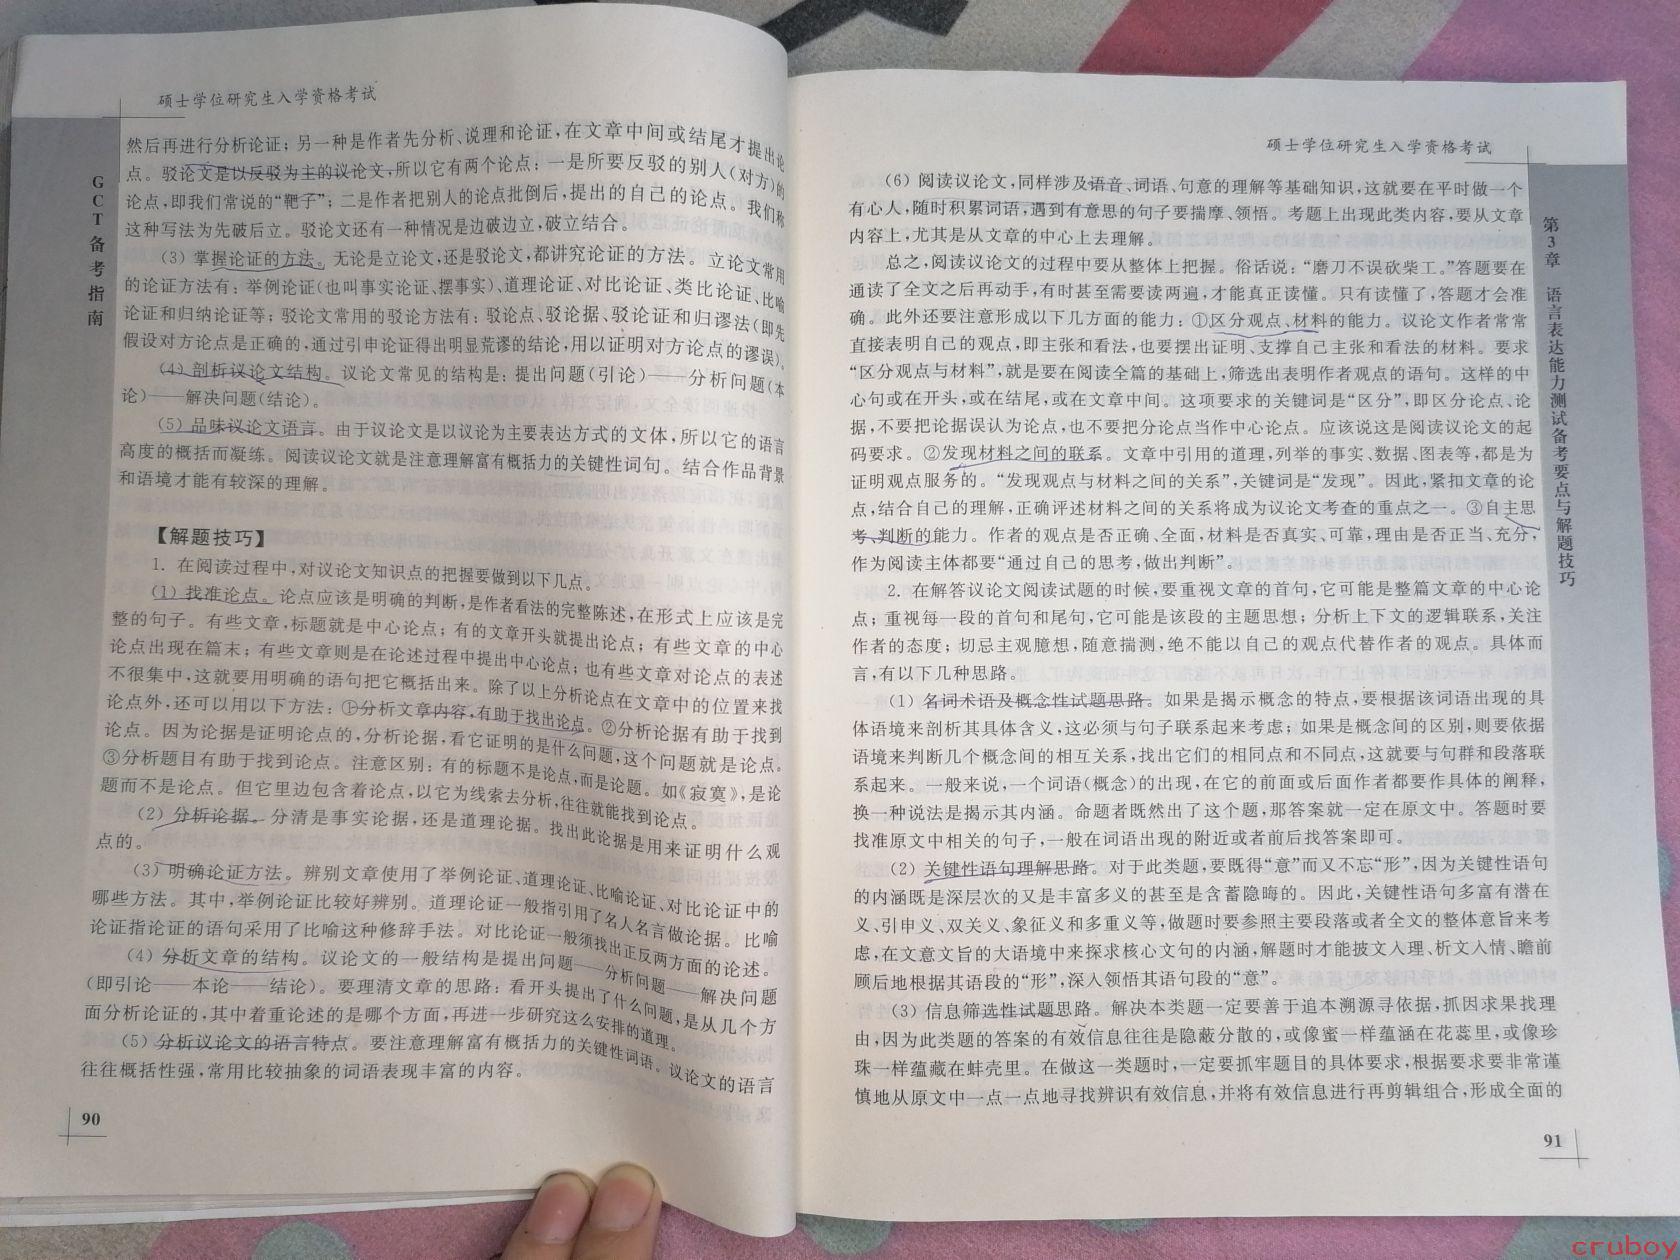 硕士学位研究生入学资格考试
GCT备考指南
然后再进行分析论证；另一种是作者先分析、说理和论证，在文章中间或结尾才提出论
点。驳论文是以反驳为主的议论文，所以它有两个论点：一是所要反驳的别人(对方)的
论点，即我们常说的“靶子”；二是作者把别人的论点批倒后，提出的自己的论点。我们称
这种写法为先破后立。驳论文还有一种情况是边破边立，破立结合。
(3) 掌握论证的方法。无论是立论文，还是驳论文，都讲究论证的方法。立论文常用
的论证方法有：举例论证(也叫事实论证、摆事实)、道理论证、对比论证、类比论证、比喻
论证和归纳论证等；驳论文常用的驳论方法有：驳论点、驳论据、驳论证和归谬法(即先
假设对方论点是正确的，通过引申论证得出明显荒谬的结论，用以证明对方论点的谬误)。
(4) 剖析议论文结构。议论文常见的结构是：提出问题(引论)——分析问题(本
论)——解决问题(结论)。
(5) 品味议论文语言。由于议论文是以议论为主要表达方式的文体，所以它的语言
高度的概括而凝练。阅读议论文就是注意理解富有概括力的关键性词句。结合作品背景
和语境才能有较深的理解。
【解题技巧】
1. 在阅读过程中，对议论文知识点的把握要做到以下几点。
(1) 找准论点。论点应该是明确的判断，是作者看法的完整陈述，在形式上应该是完
整的句子。有些文章，标题就是中心论点；有的文章开头就提出论点；有些文章的中心
论点出现在篇末；有些文章则是在论述过程中提出中心论点；也有些文章对论点的表述
不很集中，这就要用明确的语句把它概括出来。除了以上分析论点在文章中的位置来找
论点外，还可以用以下方法：①分析文章内容，有助于找出论点。②分析论据有助于找到
论点。因为论据是证明论点的，分析论据，看它证明的是什么问题，这个问题就是论点。
③分析题目有助于找到论点。注意区别：有的标题不是论点，而是论题。如《寂寞》，是论
题而不是论点。但它里边包含着论点，以它为线索去分析，往往就能找到论点。
(2) 分析论据。分清是事实论据，还是道理论据。找出此论据是用来证明什么观
点的。
(3) 明确论证方法。辨别文章使用了举例论证、道理论证、比喻论证、对比论证中的
哪些方法。其中，举例论证比较好辨别。道理论证一般指引用了名人名言做论据。比喻
论证指论证的语句采用了比喻这种修辞手法。对比论证一般须找出正反两方面的论述。
(4) 分析文章的结构。议论文的一般结构是提出问题——分析问题——解决问题
(即引论——本论——结论)。要理清文章的思路：看开头提出了什么问题，是从几个方
面分析论证的，其中着重论述的是哪个方面，再进一步研究这么安排的道理。
(5) 分析议论文的语言特点。要注意理解富有概括力的关键性词语。议论文的语言
往往概括性强，常用比较抽象的词语表现丰富的内容。
90
硕士学位研究生入学资格考试
(6) 阅读议论文，同样涉及语音、词语、句意的理解等基础知识，这就要在平时做一个
有心人，随时积累词语，遇到有意思的句子要揣摩、领悟。考题上出现此类内容，要从文章
内容上，尤其是从文章的中心上去理解。
总之，阅读议论文的过程中要从整体上把握。俗话说：“磨刀不误砍柴工。”答题要在
通读了全文之后再动手，有时甚至需要读两遍，才能真正读懂。只有读懂了，答题才会准
确。此外还要注意形成以下几方面的能力：①区分观点、材料的能力。议论文作者常常
直接表明自己的观点，即主张和看法，也要摆出证明、支撑自己主张和看法的材料。要求
“区分观点与材料”，就是要在阅读全篇的基础上，筛选出表明作者观点的语句。这样的中
心句或在开头，或在结尾，或在文章中间。这项要求的关键词是“区分”，即区分论点、论
据，不要把论据误认为论点，也不要把分论点当作中心论点。应该说这是阅读议论文的起
码要求。②发现材料之间的联系。文章中引用的道理，列举的事实、数据、图表等，都是为
证明观点服务的。“发现观点与材料之间的关系”，关键词是“发现”。因此，紧扣文章的论
点，结合自己的理解，正确评述材料之间的关系将成为议论文考查的重点之一。③自主思
考、判断的能力。作者的观点是否正确、全面，材料是否真实、可靠，理由是否正当、充分，
作为阅读主体都要“通过自己的思考，做出判断”。
2. 在解答议论文阅读试题的时候，要重视文章的首句，它可能是整篇文章的中心论
点；重视每一段的首句和尾句，它可能是该段的主题思想；分析上下文的逻辑联系，关注
作者的态度；切忌主观臆想，随意揣测，绝不能以自己的观点代替作者的观点。具体而
言，有以下几种思路。
(1) 名词术语及概念性试题思路。如果是揭示概念的特点，要根据该词语出现的具
体语境来剖析其具体含义，这必须与句子联系起来考虑；如果是概念间的区别，则要依据
语境来判断几个概念间的相互关系，找出它们的相同点和不同点，这就要与句群和段落联
系起来。一般来说，一个词语(概念)的出现，在它的前面或后面作者都要作具体的阐释，
换一种说法是揭示其内涵。命题者既然出了这个题，那答案就一定在原文中。答题时要
找准原文中相关的句子，一般在词语出现的附近或者前后找答案即可。
(2) 关键性语句理解思路。对于此类题，要既得“意”而又不忘“形”，因为关键性语句
的内涵既是深层次的又是丰富多义的甚至是含蓄隐晦的。因此，关键性语句多富有潜在
义、引申义、双关义、象征义和多重义等，做题时要参照主要段落或者全文的整体意旨来考
虑，在文意文旨的大语境中来探求核心文句的内涵，解题时才能披文入理、析文入情、瞻前
顾后地根据其语段的“形”，深入领悟其语句段的“意”。
(3) 信息筛选性试题思路。解决本类题一定要善于追本溯源寻依据，抓因求果找理
由，因为此类题的答案的有效信息往往是隐蔽分散的，或像蜜一样蕴涵在花蕊里，或像珍
珠一样蕴藏在蚌壳里。在做这一类题时，一定要抓牢题目的具体要求，根据要求要非常谨
慎地从原文中一点一点地寻找辨识有效信息，并将有效信息进行再剪辑组合，形成全面的
第3章 语言表达能力测试备考要点与解题技巧
91
cruboy